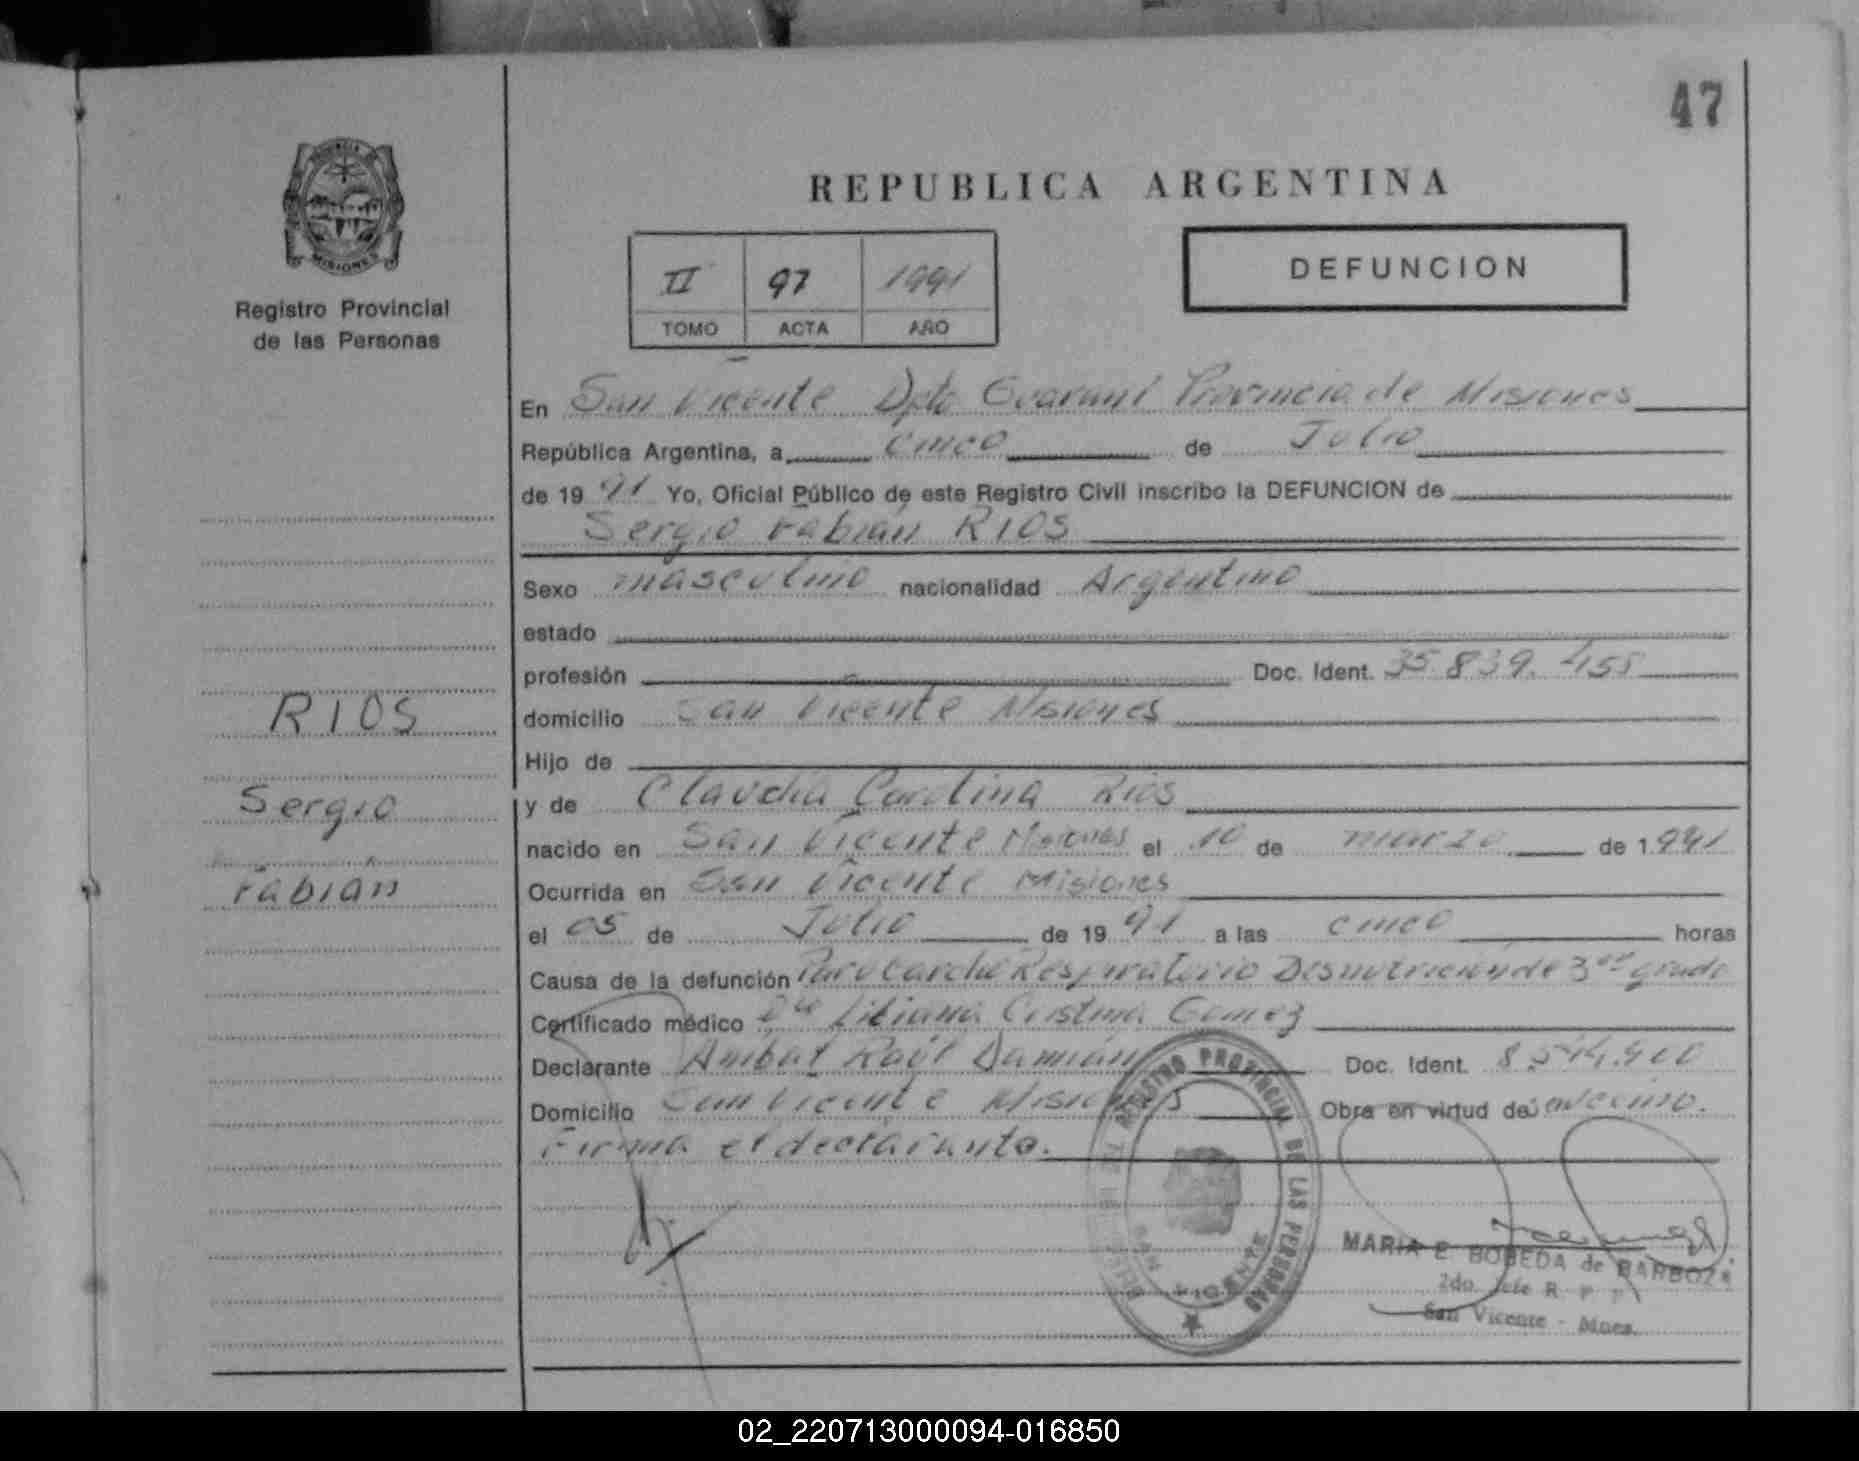 47
PROVINCIA DE
MISIONES
Registro Provincial
de las Personas
REPUBLICA ARGENTINA
II 97 1991
TOMO ACTA AÑO
DEFUNCION
En San Vicente Dpto Guaraní Provincia de Misiones
República Argentina, a cinco de Julio
de 19 91 Yo, Oficial Público de este Registro Civil inscribo la DEFUNCION de
Sergio Fabián RIOS
Sexo masculino nacionalidad Argentino
estado
profesión Doc. Ident. 35.839.455
domicilio San Vicente Misiones
Hijo de
y de Claudia Carolina Rios
nacido en San Vicente Misiones el 10 de marzo de 1991
Ocurrida en San Vicente Misiones
el 05 de Julio de 19 91 a las cinco horas
Causa de la defunción Paro Cardio Respiratorio Desnutrición de 3er grado
Certificado médico Dra Liliana Cristina Gomez
Declarante Anibal Raúl Damián Doc. Ident.
Domicilio San Vicente Misiones Obra en virtud de vecino.
Firma el declarante.
RIOS
Sergio
Fabián
REGISTRO PROVINCIAL DE LAS PERSONAS
SAN VICENTE
MARIA E. BOBEDA de BARBOZA
2do. Jefe R. P. P.
San Vicente - Mnes.
02_220713000094-016850